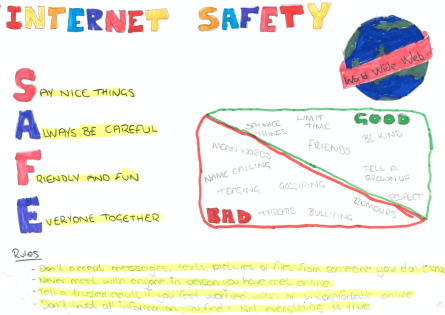 INTERNET SAFETY
World Wide Web
SAY NICE THINGS
ALWAYS BE CAREFUL
FRIENDLY AND FUN
EVERYONE TOGETHER
GOOD
SAY NICE THINGS
LIMIT TIME
BE KIND
FRIENDS
TELL A GROWNUP
RESPECT
MEAN WORDS
NAME CALLING
TEASING
GOSSIPING
RUMOURS
BAD
THREATS
BULLYING
Rules
- Don't accept messages, texts, pictures or files from someone you don't
- Never meet with anyone in person you have met online
- Tell a trusted adult if you feel worried, or uncomfortable online
- Don't trust all information you find - Not everything is true